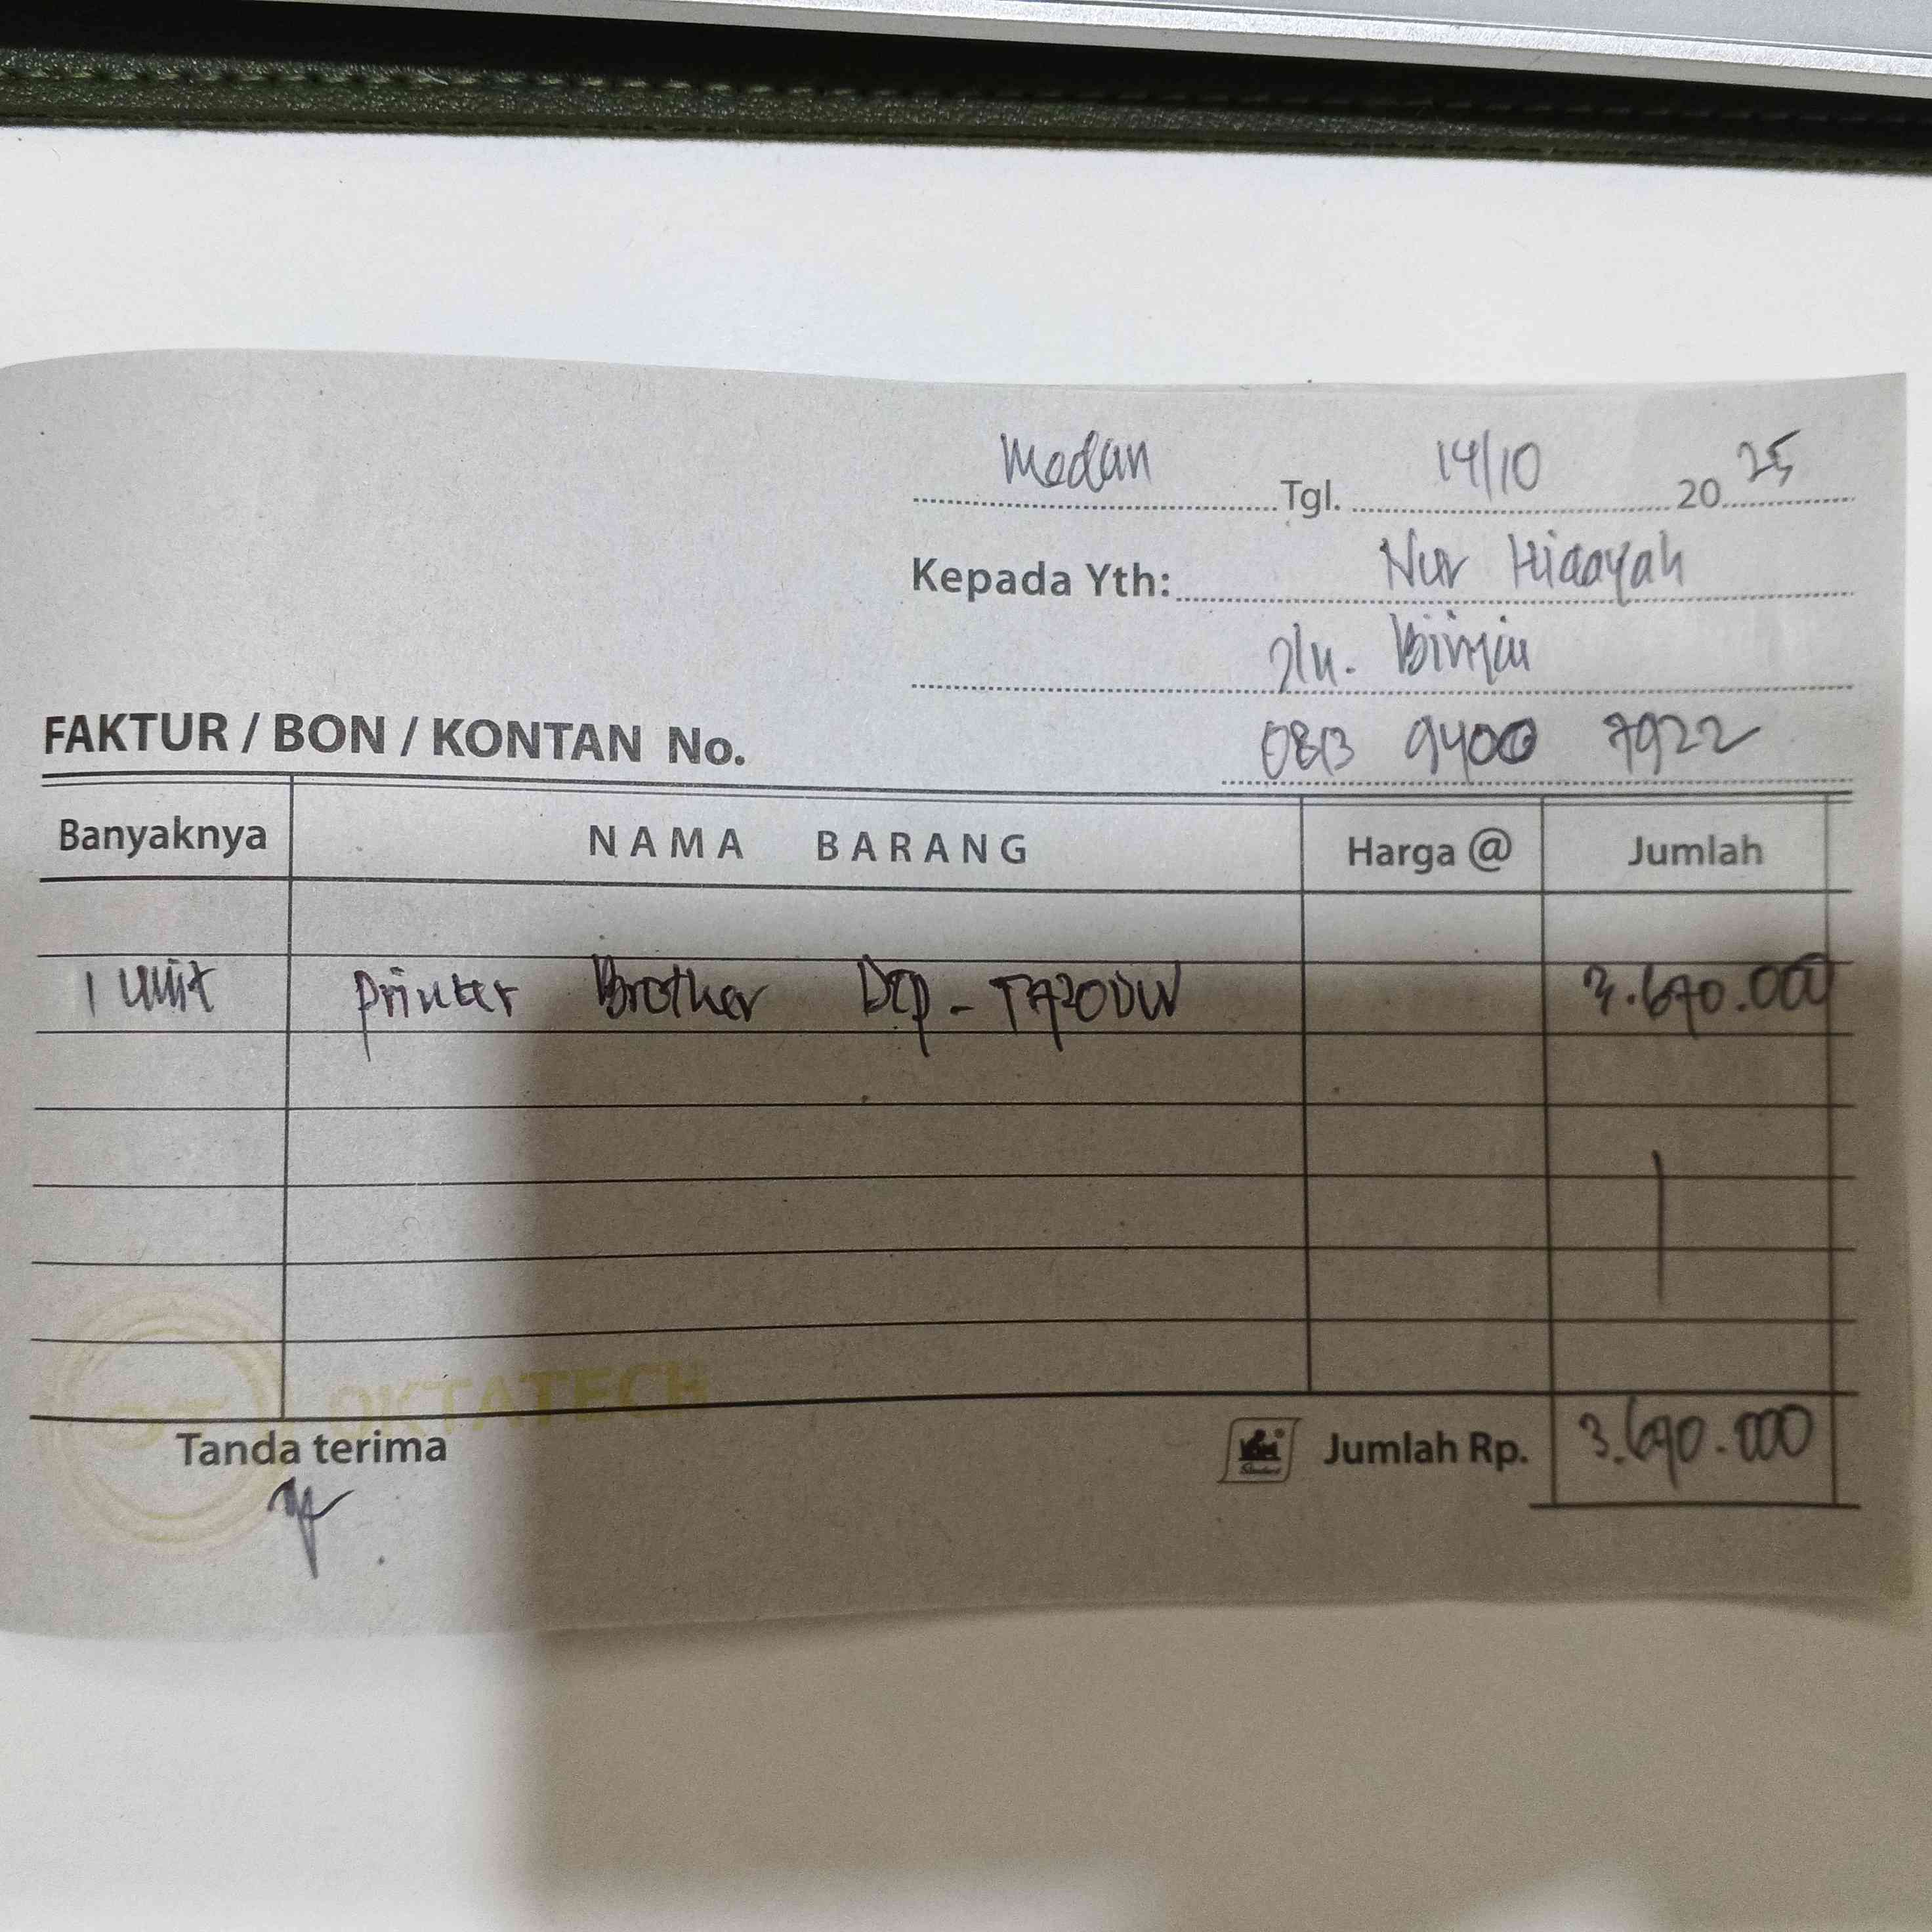 Medan Tgl. 14/10 2025
Kepada Yth: Nur Hidayah
Jln. Binjai
0813 9400 7922
FAKTUR / BON / KONTAN No.
Banyaknya NAMA BARANG Harga @ Jumlah
1 Unit Printer Brother DCP-T720DW 3.690.000
OKTATECH
Tanda terima Jumlah Rp. 3.690.000